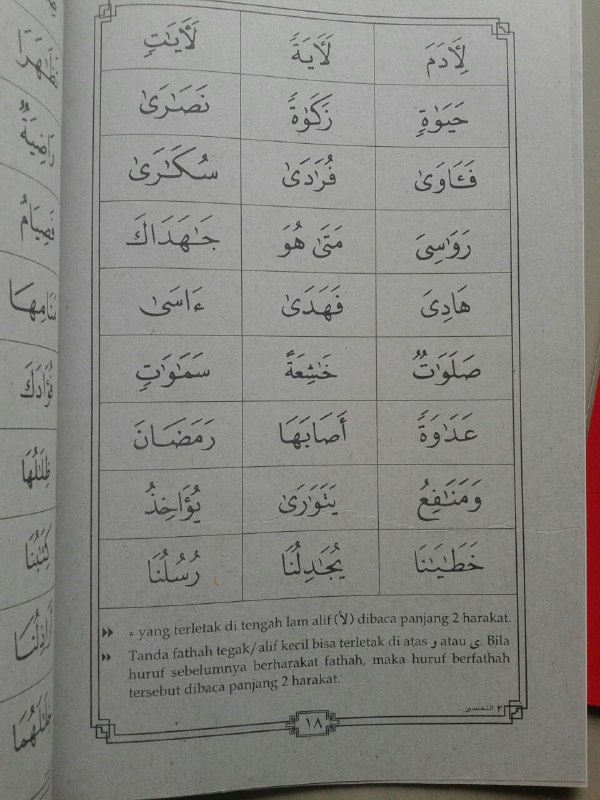 لِأَدَمَ لَأَيَةً لَأَيَٰتٍ
حَيَوٰةٍ زَكَوٰةً نَصَٰرَىٰ
فَـَٔاوَىٰ فُرَٰدَىٰ سُكَٰرَىٰ
رَوَٰسِيَ مَتَىٰ هُوَ جَٰهَدَاكَ
هَادِيَ فَهَدَىٰ ءَاسَىٰ
صَلَوَٰتٌ خَٰشِعَةً سَمَٰوَٰتٍ
عَدَٰوَةً أَصَابَهَا رَمَضَانَ
وَمَنَٰفِعُ يَتَوَٰرَىٰ يُؤَاخِذُ
خَطَٰيَٰنَا يُجَٰدِلُنَا رُسُلُنَا
ء yang terletak di tengah lam alif (لأ) dibaca panjang 2 harakat.
Tanda fathah tegak/alif kecil bisa terletak di atas و atau ى. Bila
huruf sebelumnya berharakat fathah, maka huruf berfathah
tersebut dibaca panjang 2 harakat.
٣ التحسين
١٨
رَاضِيَةً
صِيَامُ
فُؤَادَكَ
ظِلَٰلُهَا
كِتَٰبُنَا